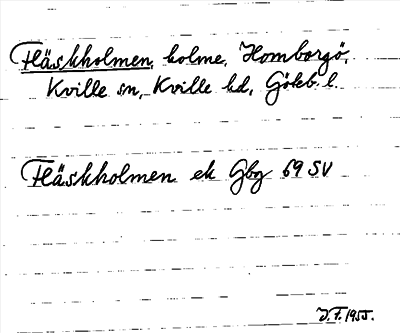 Fläskholmen, holme, Homborgö,
Kville sn, Kville hd, Göteb. l.
Fläskholmen ek Gbg 69 SV
J.F. 1955.